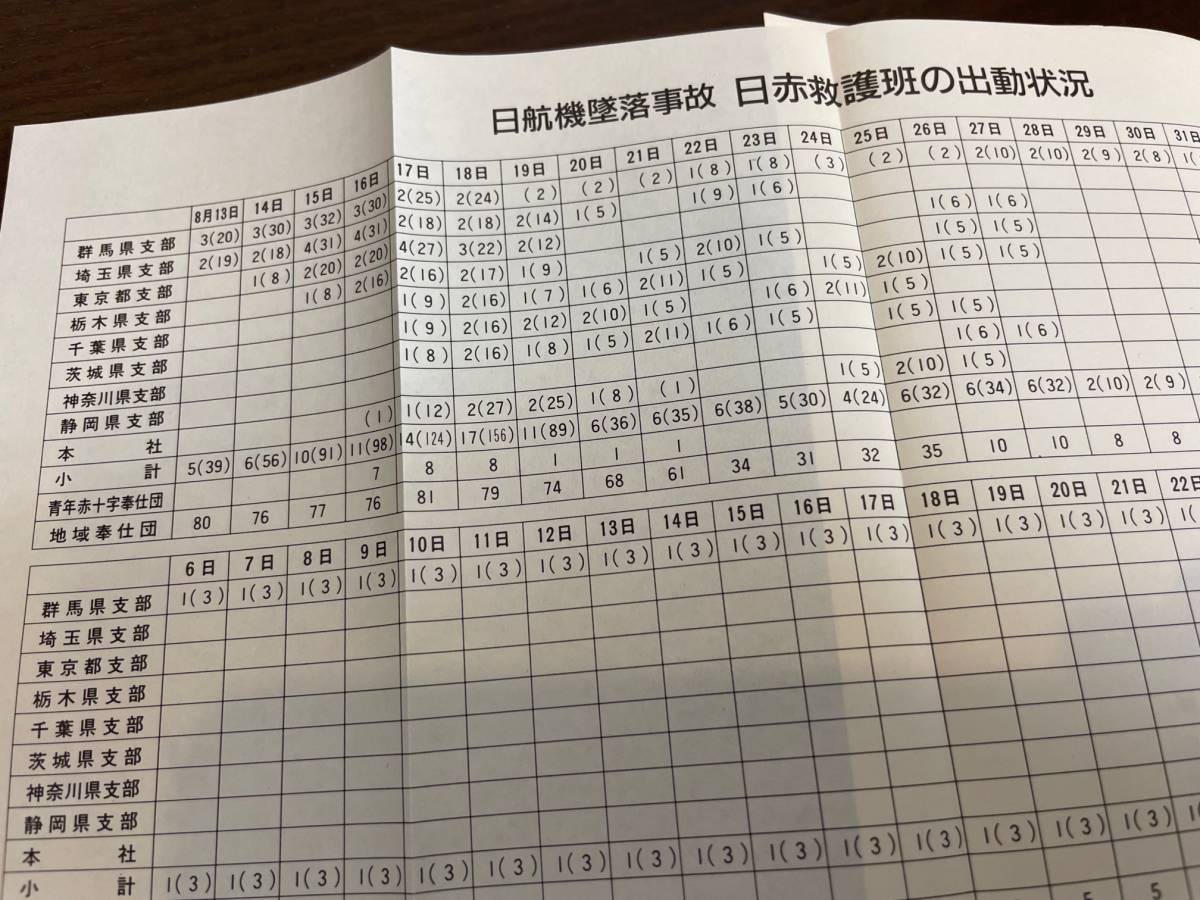 日航機墜落事故 日赤救護班の出動状況
8月13日 14日 15日 16日 17日 18日 19日 20日 21日 22日 23日 24日 25日 26日 27日 28日 29日 30日 31日
群馬県支部 3(20) 3(30) 3(32) 3(30) 2(25) 2(24) (2) (2) (2) 1(8) 1(8) (3) (2) (2) 2(10) 2(10) 2(9) 2(8) 1(
埼玉県支部 2(19) 2(18) 4(31) 4(31) 2(18) 2(18) 2(14) 1(5) 1(9) 1(6) 1(6) 1(6)
東京都支部 1(8) 2(20) 2(20) 4(27) 3(22) 2(12) 1(5) 1(5)
栃木県支部 1(8) 2(16) 2(16) 2(17) 1(9) 1(5) 2(10) 1(5) 1(5) 1(5)
千葉県支部 1(9) 2(16) 1(7) 1(6) 2(11) 1(5) 1(5) 2(10)
茨城県支部 1(9) 2(16) 2(12) 2(10) 1(5) 1(6) 2(11) 1(5)
神奈川県支部 1(8) 2(16) 1(8) 1(5) 2(11) 1(6) 1(5) 1(5) 1(5)
静岡県支部 1(6) 1(6)
本社 (1) 1(12) 2(27) 2(25) 1(8) (1) 1(5) 2(10) 1(5)
小計 5(39) 6(56) 10(91) 11(98) 14(124) 17(156) 11(89) 6(36) 6(35) 6(38) 5(30) 4(24) 6(32) 6(34) 6(32) 2(10) 2(9)
青年赤十字奉仕団 7 8 8 1 1 1
地域奉仕団 80 76 77 76 81 79 74 68 61 34 31 32 35 10 10 8 8
6日 7日 8日 9日 10日 11日 12日 13日 14日 15日 16日 17日 18日 19日 20日 21日 22日
群馬県支部 1(3) 1(3) 1(3) 1(3) 1(3) 1(3) 1(3) 1(3) 1(3) 1(3) 1(3) 1(3) 1(3) 1(3) 1(3) 1(3) 1(
埼玉県支部
東京都支部
栃木県支部
千葉県支部
茨城県支部
神奈川県支部
静岡県支部
本社
小計 1(3) 1(3) 1(3) 1(3) 1(3) 1(3) 1(3) 1(3) 1(3) 1(3) 1(3) 1(3) 1(3) 1(3) 1(3) 1(3)
5 5